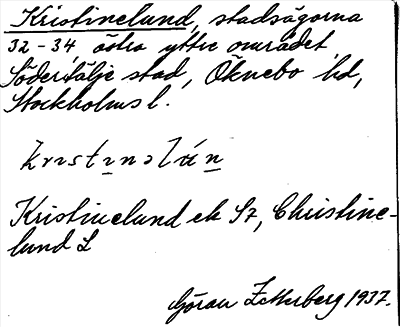 Kristinelund, stadsägorna
32-34, östra yttre området
Södertälje stad, Öknebo hd,
Stockholms l.
krɪstɪnəlún
Kristinelund ek Sz, Christine-
lund L
Göran Zetterberg 1937.